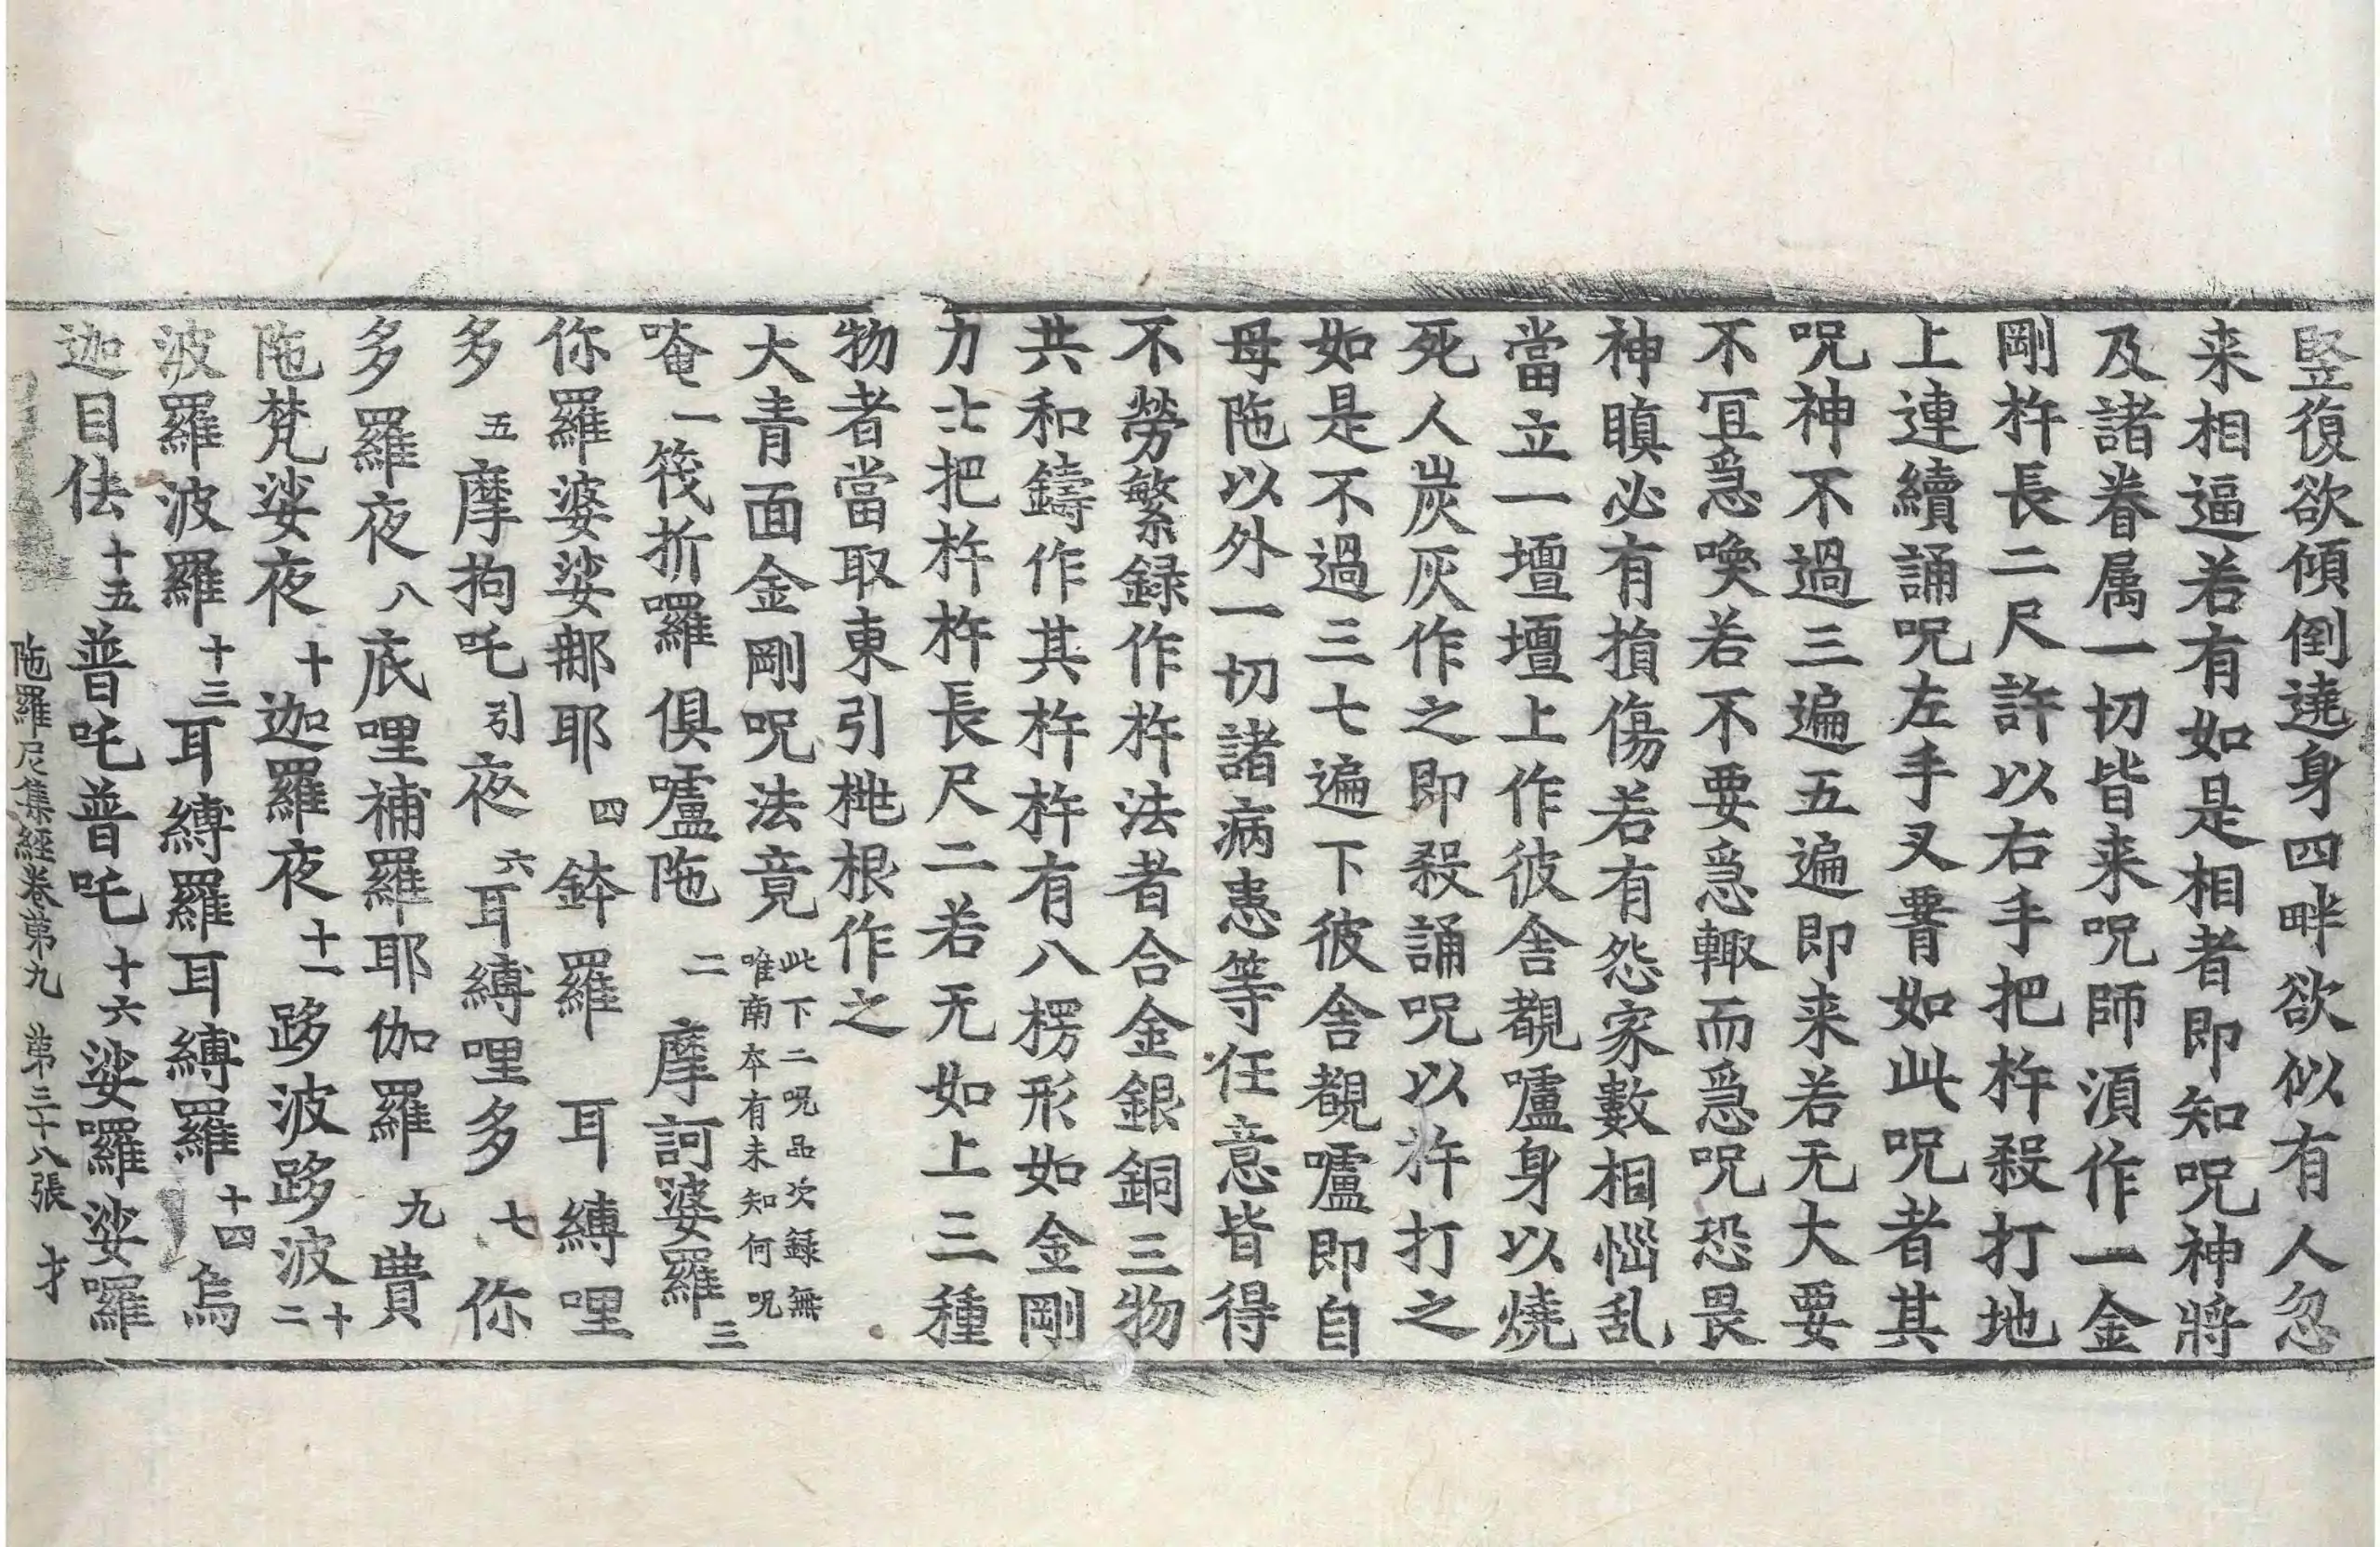 竪復欲傾倒遶身四畔欲似有人忽
来相逼若有如是相者即知呪神將
及諸眷属一切皆来呪師湏作一金
剛杵長二尺許以右手把杵殺打地
上連續誦呪左手叉𦝫如此呪者其
呪神不過三遍五遍即来若无大要
不冝急喚若不要急輙而急呪恐畏
神瞋必有損傷若有怨家數相惱乱
當立一壇壇上作彼舎覩嚧身以燒
死人炭灰作之即殺誦呪以杵打之
如是不過三七遍下彼舎覩嚧即自
母陁以外一切諸病患等任意皆得
不勞繁録作杵法者合金銀銅三物
共和鑄作其杵杵有八楞形如金剛
力士把杵杵長尺二若无如上三種
物者當取東引桃根作之
大青面金剛呪法竟 此下二呪品次録無唯南本有未知何呪
唵一筏折囉俱嚧陁二摩訶婆羅三
你羅婆娑郍耶四鉢羅耳縛哩
多五摩拘吒引夜六耳縛哩多七你
多羅夜八底哩補羅耶伽羅九費
陁梵娑夜十迦羅夜十一跢波跢波十二
波羅波羅十三耳縛羅耳縛羅十四烏
迦目佉十五普吒普吒十六娑囉娑囉
陁羅尼集經卷第九 第三十八張 才